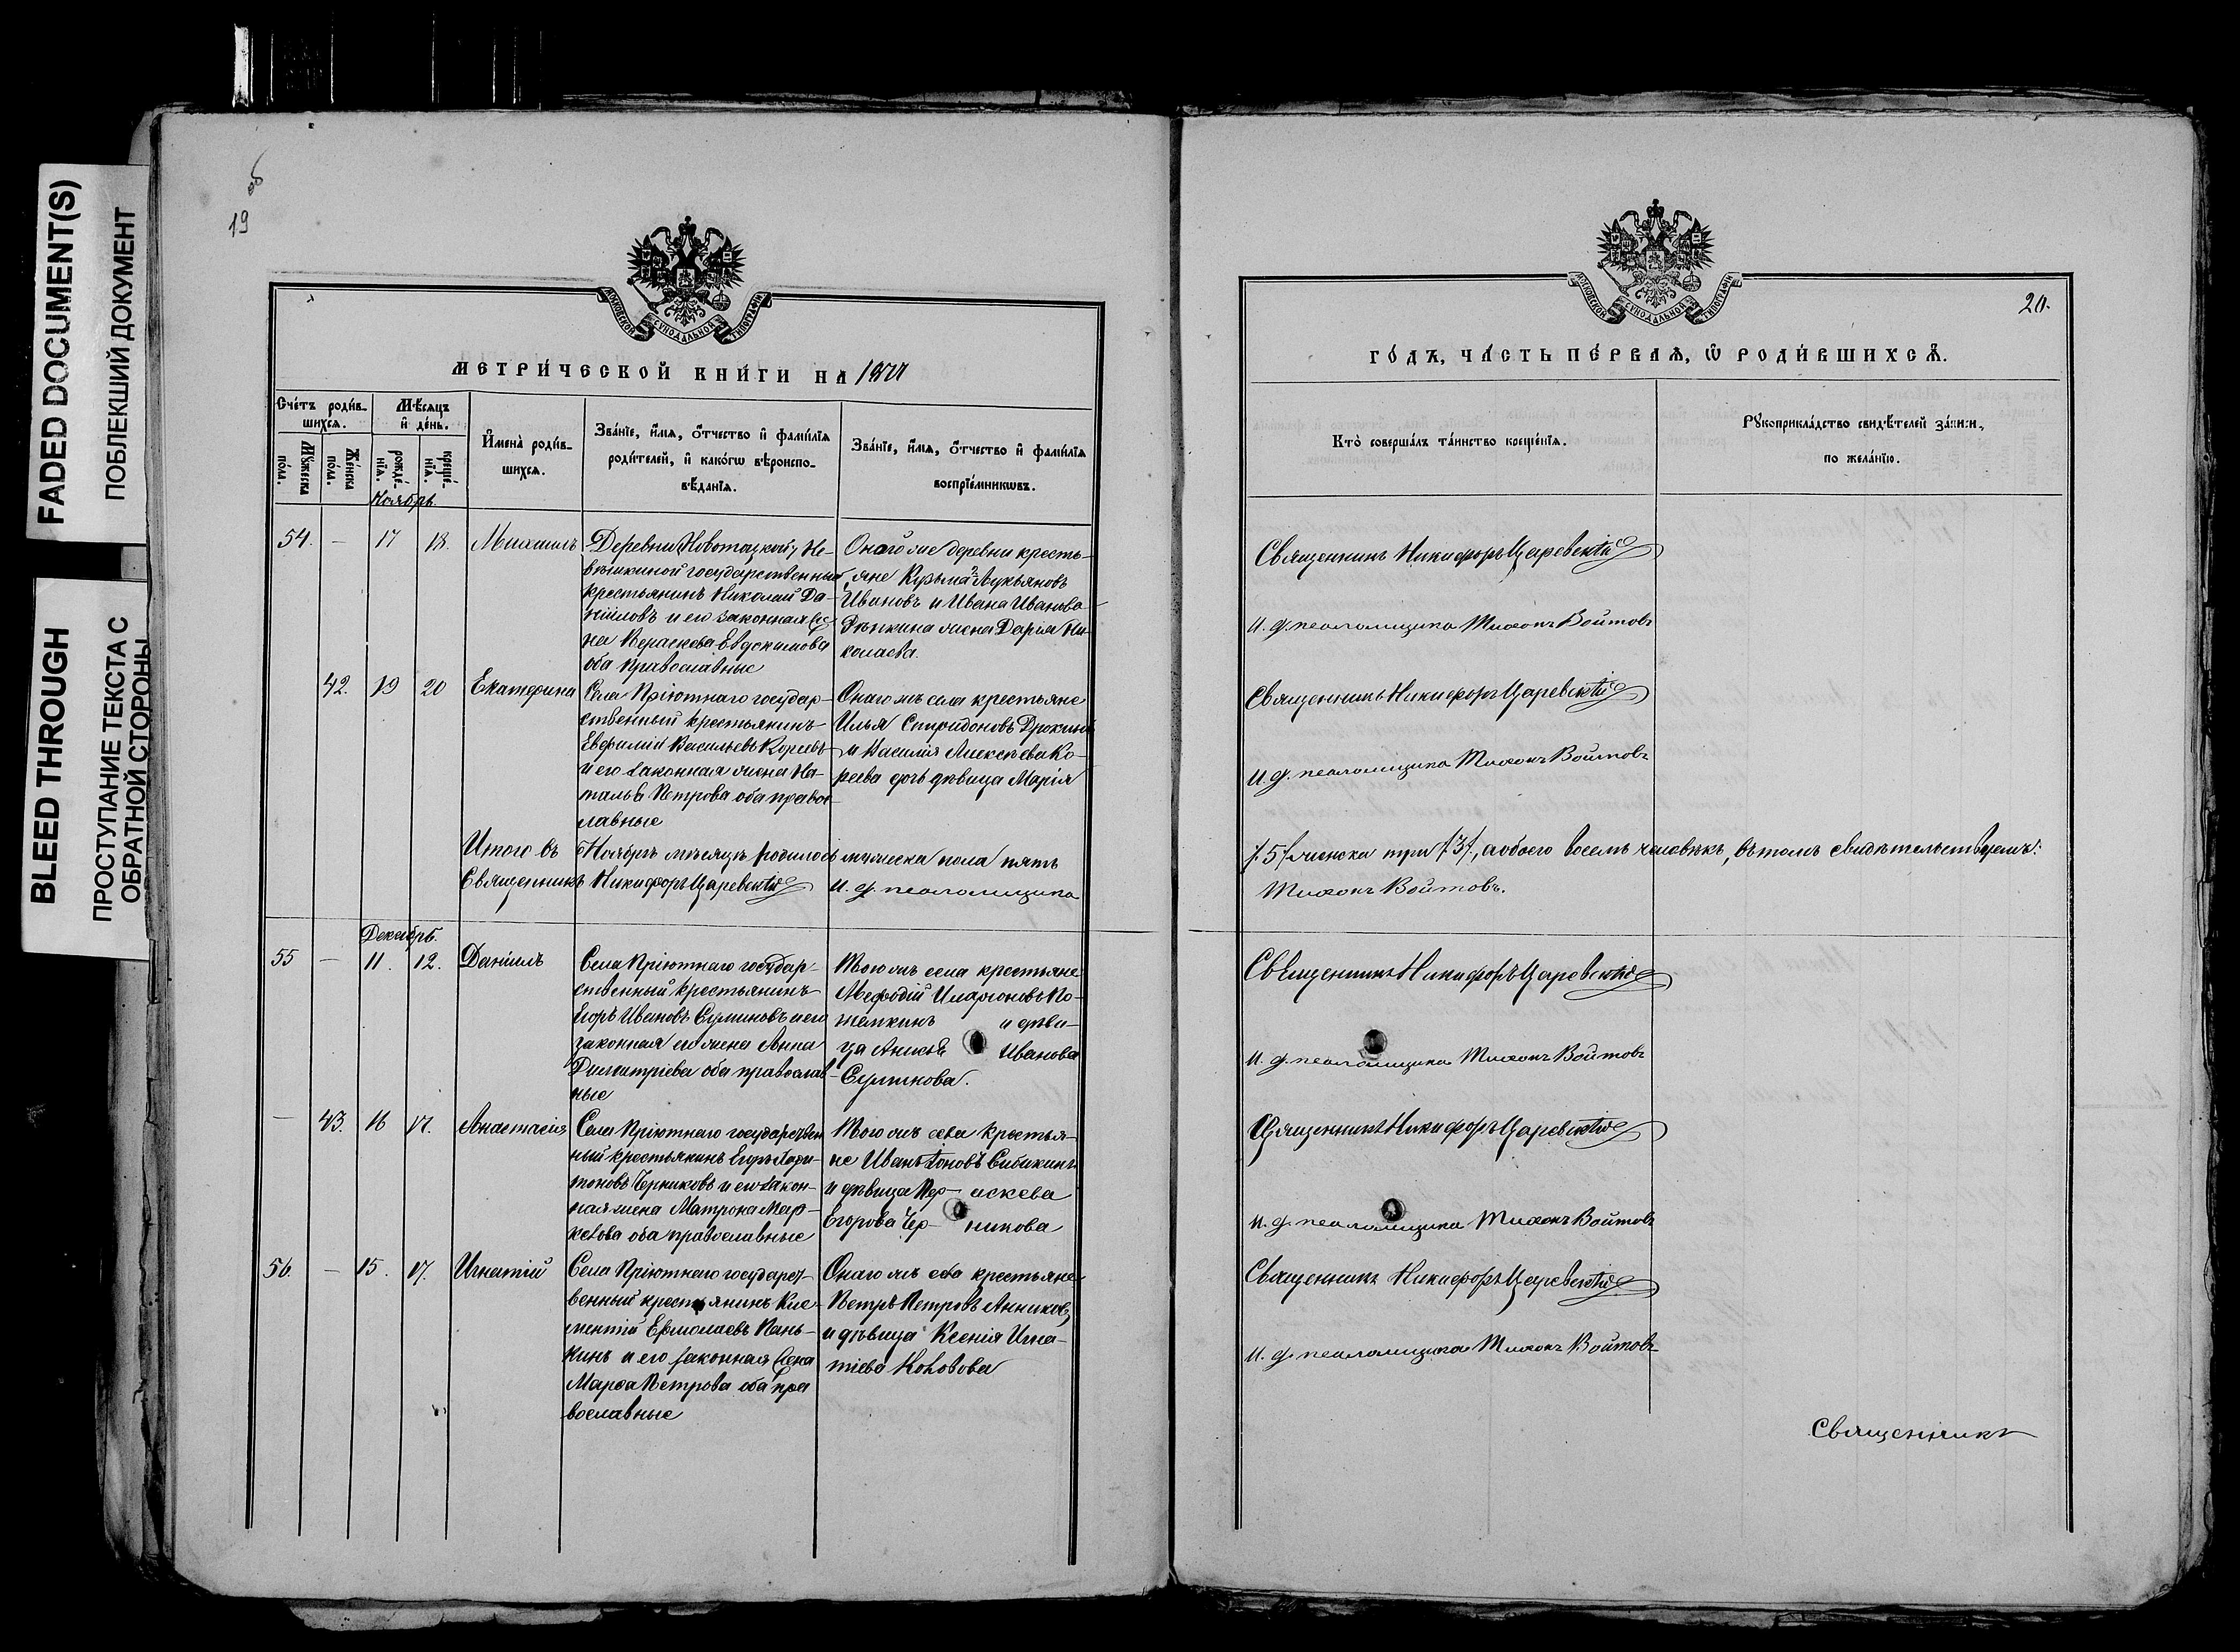 FADED DOCUMENT(S)
ПОБЛЕКШИЙ ДОКУМЕНТ
BLEED THROUGH
ПРОСТУПАНИЕ ТЕКСТА С
ОБРАТНОЙ СТОРОНЫ
об
19
МОСКОВСКОЙ СУНОДАЛЬНОЙ ТИПОГРАФІИ
МЕТРИ́ЧЕСКОЙ КНИ́ГИ НА
Сче́тъ роди́в-
шихсѧ.
Мѣ́сяцъ
и҆ де́нь.
Мꙋ́жеска
по́ла.
Же́нска
по́ла.
рожде́-
нїѧ.
креще́-
нїѧ.
И҆мена̀ роди́в-
шихсѧ.
Зва́нїе, и҆́мѧ, ѻ҆́тчество и҆ фамѝлїѧ
роди́телей, и҆ како́гѡ вѣроиспо-
вѣ́данїѧ.
Зва́нїе, и҆́мѧ, ѻ҆́тчество и҆ фамѝлїѧ
воспрїе́мникѡвъ.
Ноябрь.
54. — 17 18. Михаилъ
Деревни Новотацкой,
государственный
крестьянинъ Николай Да-
ніиловъ и его законная
Евдокимова
оба православные
Онаго же деревни кресть-
яне Кузьма Лукьяновъ
Ивановъ и Ивана Иванова
жена Дарія Ни-
колаева.
42. 19 20 Екатерина
Села Пріютнаго государ-
ственный крестьянинъ
Евфимій Васильевъ
и его законная жена На-
талья Петрова оба правос-
лавные
Онаго жъ села крестьяне
Илья Спиридоновъ
и Василія Алексѣева Ко-
реева дочь дѣвица Марія
Итого въ Ноябрѣ мѣсяцѣ родилось мужеска пола пять
Священникъ Никифоръ Царевскій и. д. псаломщика
Декабрь.
55 — 11. 12. Даніилъ
Села Пріютнаго государ-
ственный крестьянинъ
Егоръ Ивановъ и его
законная его жена Анна
Димитріева оба православ-
ные
Того жъ села крестьяне
Мефодій Иларіоновъ По-
темкинъ и дѣви-
ца Иванова
— 43. 16 17. Анастасія
Села Пріютнаго государствен
ный крестьянинъ Егоръ Хари-
тоновъ Черниковъ и его закон-
ная жена Матрона Мар-
келова оба православные
Того жъ села крестья-
не Иванъ
и дѣвица Пар- аскева
Егорова Чер- никова
56. — 15. 17. Игнатій
Села Пріютнаго государст-
венный крестьянинъ Кле-
ментій Ермолаевъ Пань-
кинъ и его законная жена
Марѳа Петрова оба пра
вославные
Онаго жъ села крестьяне
Петръ Петровъ Анниковъ,
и дѣвица Ксенія Игна-
тіева
МОСКОВСКОЙ СУНОДАЛЬНОЙ ТИПОГРАФІИ
20.
ГО́ДЪ, ЧА́СТЬ ПЕ́РВАѦ, Ѡ҆ РОДИ́ВШИХСѦ.
Кто̀ соверша́лъ та́инство креще́нїѧ.
Рꙋкоприкла́дство свидѣ́телей
по жела́нїю.
Священникъ Никифоръ Царевскій
И. д. псаломщика Тихонъ Войтовъ
Священникъ Никифоръ Царевскій
И. д. псаломщика Тихонъ Войтовъ
/5/ женска три /3/, а обоего восемь человѣкъ, въ томъ свидѣтельствуемъ:
Тихонъ Войтовъ.
Священникъ Никифоръ Царевскій
И. д. псаломщика Тихонъ Войтовъ
Священникъ Никифоръ Царевскій
И. д. псаломщика Тихонъ Войтовъ
Священникъ Никифоръ Царевскій
И. д. псаломщика Тихонъ Войтовъ
Священникъ